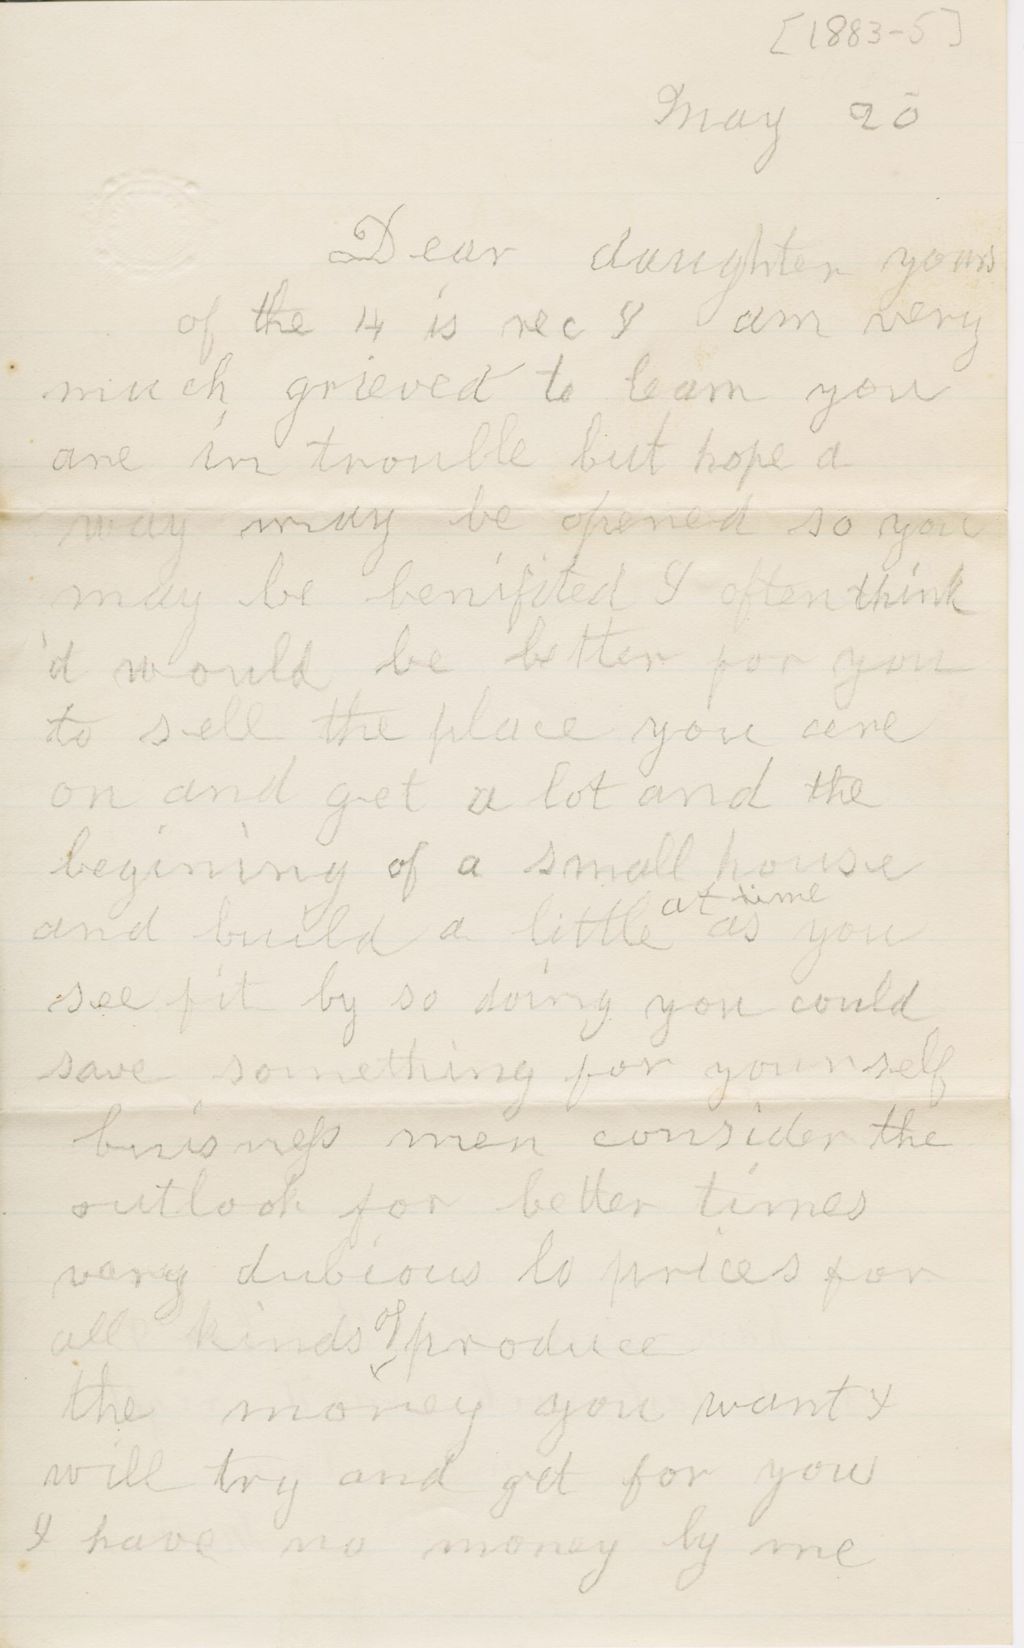 [1883-5]
May 20
Dear daughter yours
of the 4 is rec I am very
much grieved to learn you
are in trouble but hope a
way may be opened so you
may be benifited I often think
it would be better for you
to sell the place you are
on and get a lot and the
begining of a small house
and build a little at time as you
see fit by so doing you could
save something for yourself
buisness men consider the
outlook for better times
very dubious lo prices for
all kinds of produce
the money you want I
will try and get for you
I have no money by me